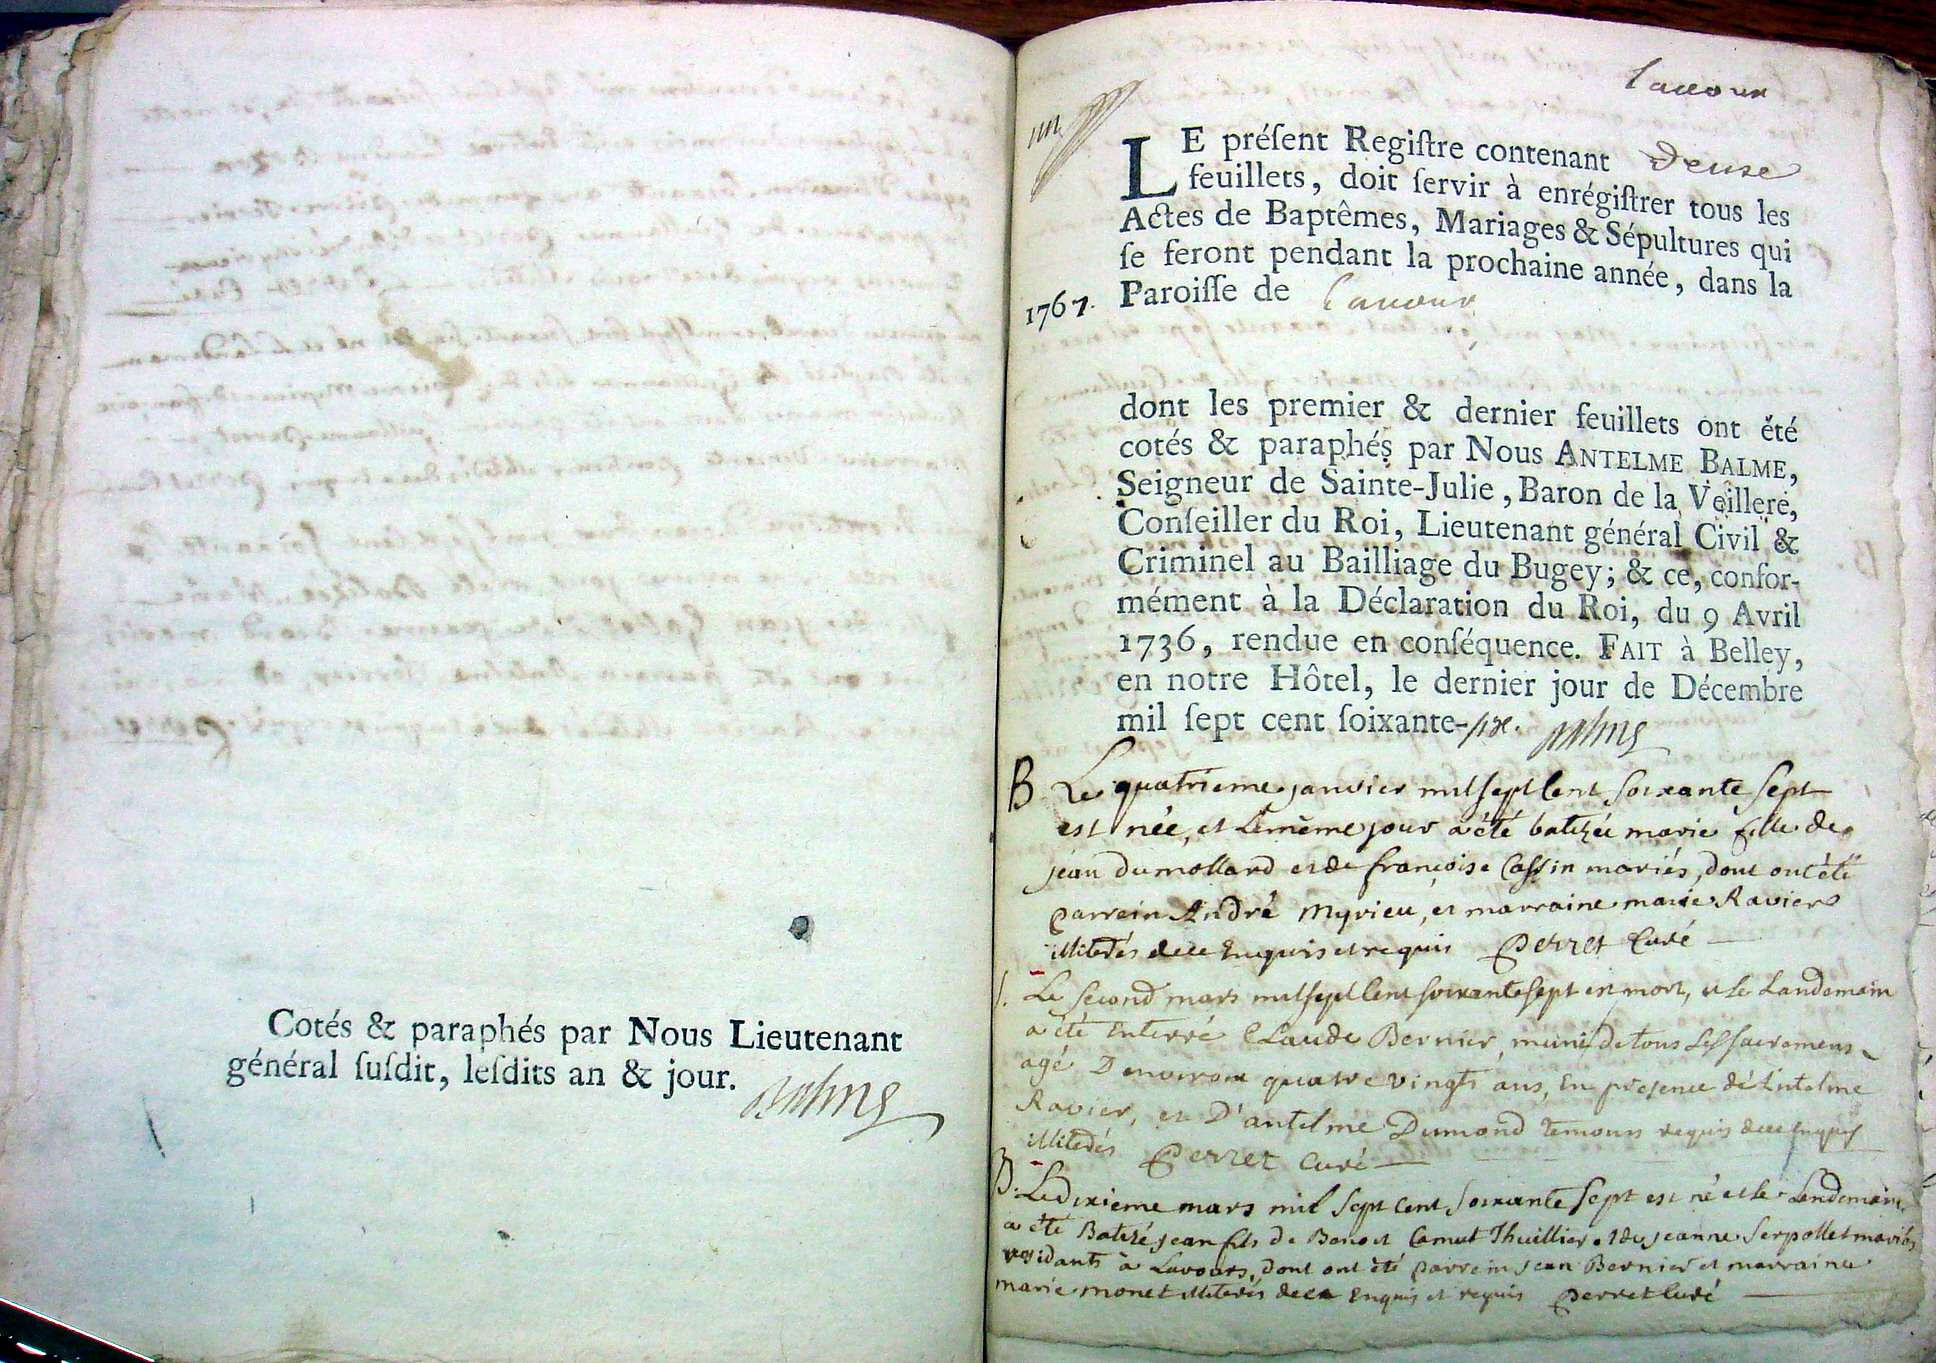 Cotés & paraphés par Nous Lieutenant
général ſuſdit, leſdits an & jour.
Balme
Lavour
LE préſent Regiſtre contenant Deuse
feuillets, doit ſervir à enrégiſtrer tous les
Actes de Baptêmes, Mariages & Sépultures qui
ſe feront pendant la prochaine année, dans la
1767. Paroiſſe de Lavour
dont les premier & dernier feuillets ont été
cotés & paraphés par Nous ANTELME BALME,
Seigneur de Sainte-Julie, Baron de la Veillere,
Conſeiller du Roi, Lieutenant général Civil &
Criminel au Bailliage du Bugey; & ce, confor-
mément à la Déclaration du Roi, du 9 Avril
1736, rendue en conſéquence. FAIT à Belley,
en notre Hôtel, le dernier jour de Décembre
mil ſept cent ſoixante-six. Balme
B Le quatrieme janvier mil sept Cent soixante sept
est née, et le même jour a été batizée marie fille de
jean dumollard et de françoise Cassin mariés, dont ont été
parrein André Myrieu, et marraine marie Raviers
illiterés de ce Enquis et requis Perret Curé
S. Le second mars mil sept Cent soixante sept est mort, et le Landemain
a été Enterré Claude Bernier, muni de tous Les sacremens
agé D'environ quatre vingts ans, En presence d'Antelme
Ravier, et D'antelme Dumond temoins requis de ce Enquis
illiterés Perret Curé
B. Le dixieme mars mil sept cent soixante sept est né et le Lendemain
a été Batizé jean fils de Benoit Camut Thuillier et de jeanne Serpollet mariés
residants à Lavours, dont ont été parrein jean Bernier et marraine
marie monet illiterés de ce Enquis et requis Perret Curé